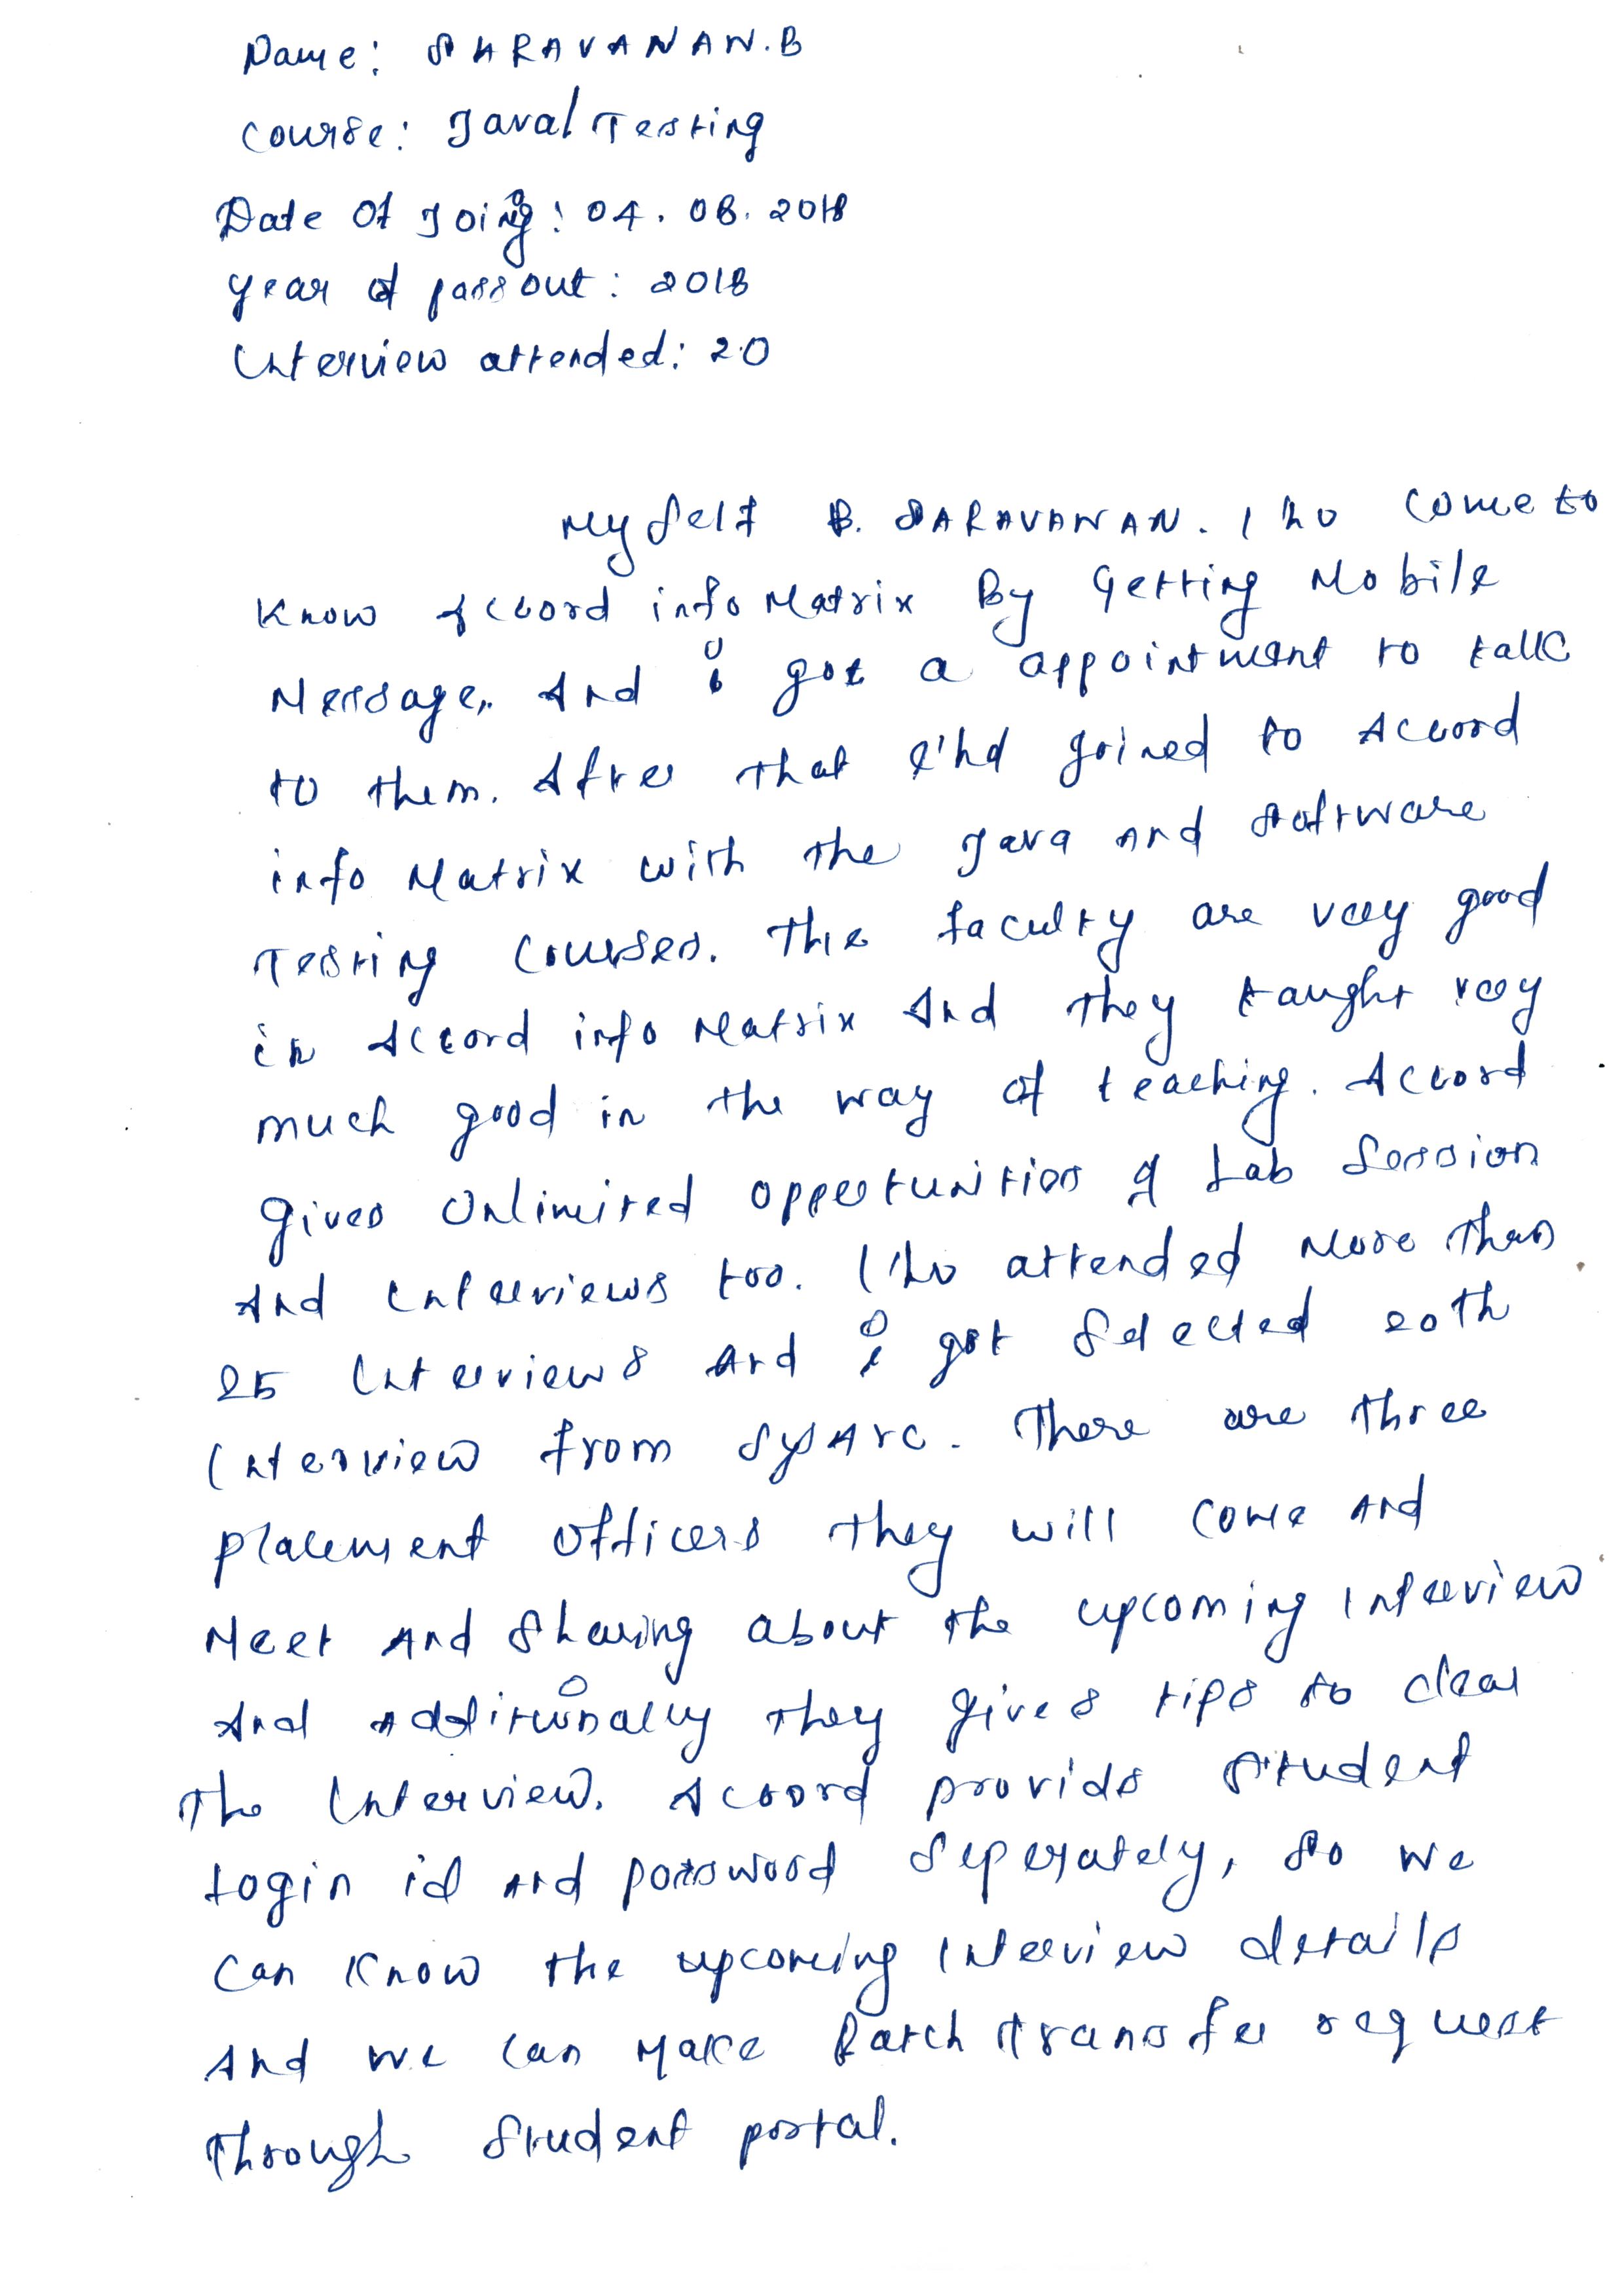 Name: SARAVANAN.B
Course: Java/Testing
Date Of Joing: 04.08.2018
Year of passout: 2018
Interview attended: 20
My self B. SARAVANAN. I come to
Know Accord info Matrix By Getting Mobile
Message. And i got a appointment to talk
to them. After that joined to Accord
info Matrix with the Java And software
Testing Courses. The faculty are very good
in Accord info Matrix And They taught very
much good in the way of teaching. Accord
gives Unlimited opportunities of Lab Session
And Interviews too. attended More than
25 Interviews And i got Selected 20th
Interview from SysArc. There are three
placement Officers they will come And
Meet And Sharing about the upcoming Interview
And Additionally they gives tips to clear
The Interview. Accord provids student
Login id And password Seperately, so we
Can Know the upcoming Interview details
And we can Make Batch transfer request
Through Student portal.